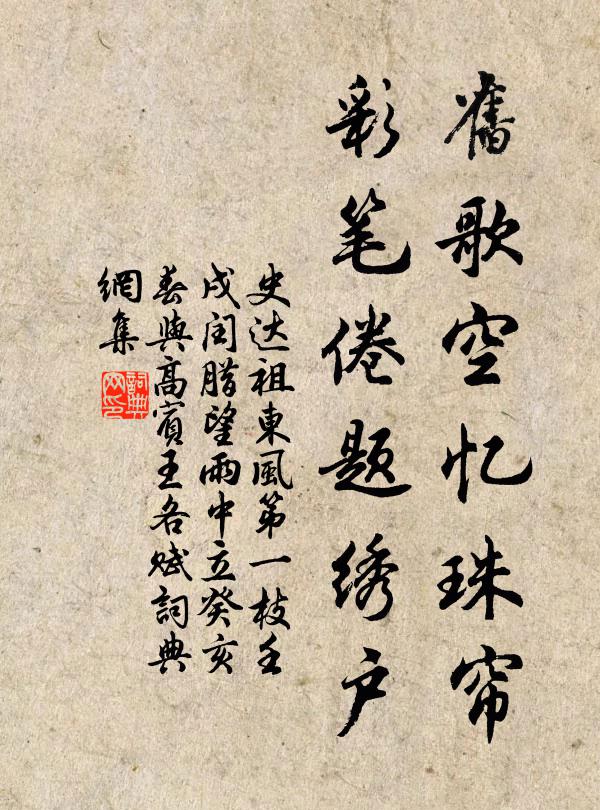 舊歌空忆珠帘
彩笔倦题绣户
史达祖東風第一枝壬
戌闰腊望雨中立癸亥
春與高賓王各赋詞典
網集
詞典
网印